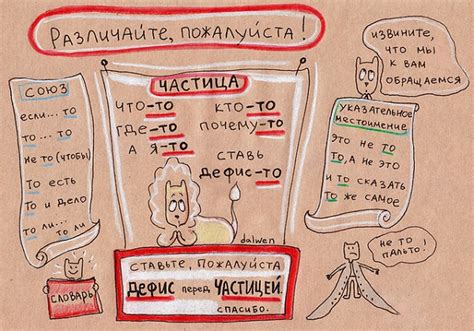 Различайте, пожалуйста!
СОЮЗ
если... то
то ... то
не то (чтобы)
то есть
то и дело
то ли...
то ли
ЧАСТИЦА
что-то
кто-то
где-то
почему-то
а я-то
ставь
дефис-то
dalwen
извините,
что мы
к вам
обращаемся
указательное
местоимение
это не то
то, а не это
и то сказать
то же самое
не то
пальто!
словарь
Ставьте, пожалуйста
ДЕФИС перед ЧАСТИЦЕЙ.
спасибо.